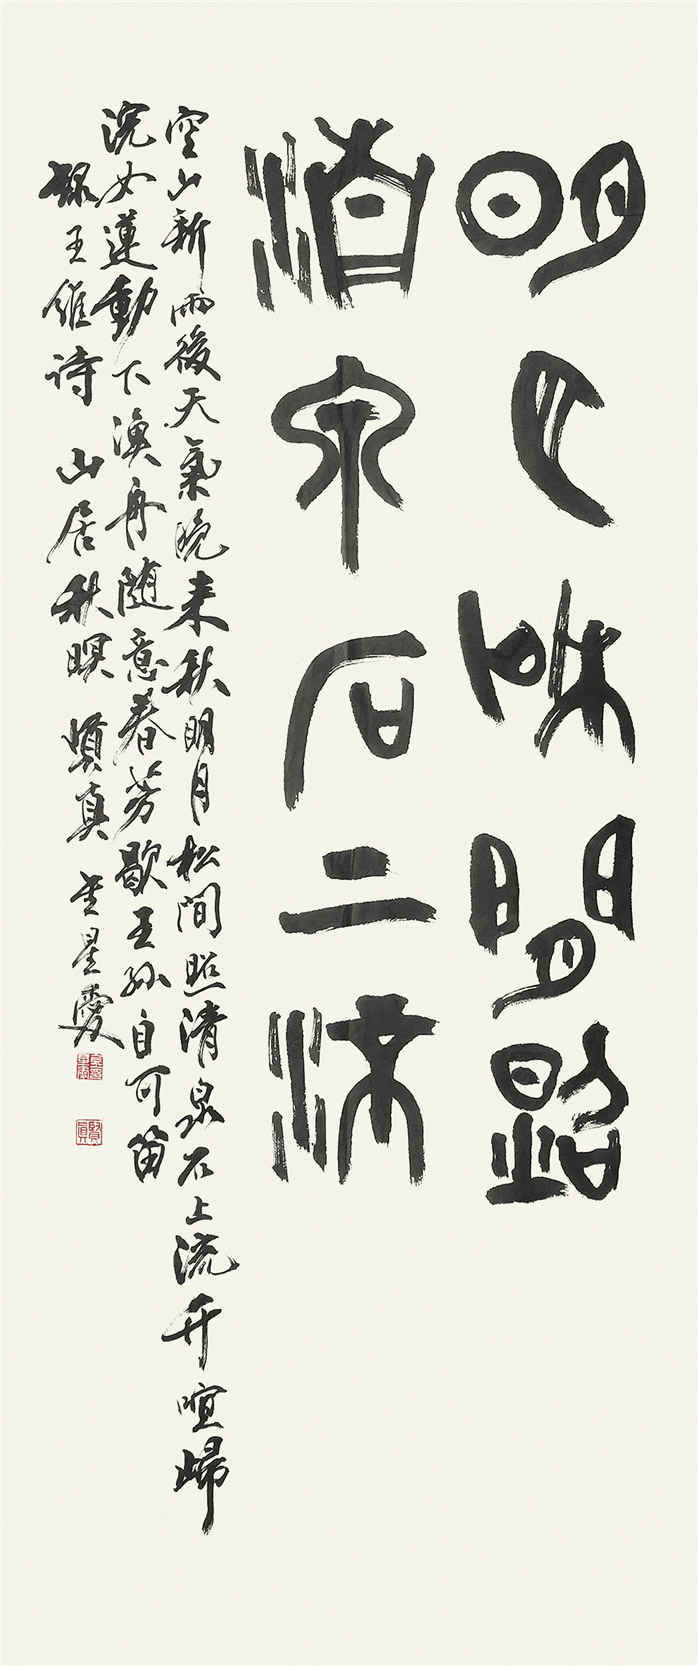 明月松間照
清泉石上流
空山新雨後天氣晚来秋明月松間照清泉石上流竹喧歸
浣女蓮動下漁舟随意春芳歇王孫自可留
録王維诗 山居秋暝 真 星